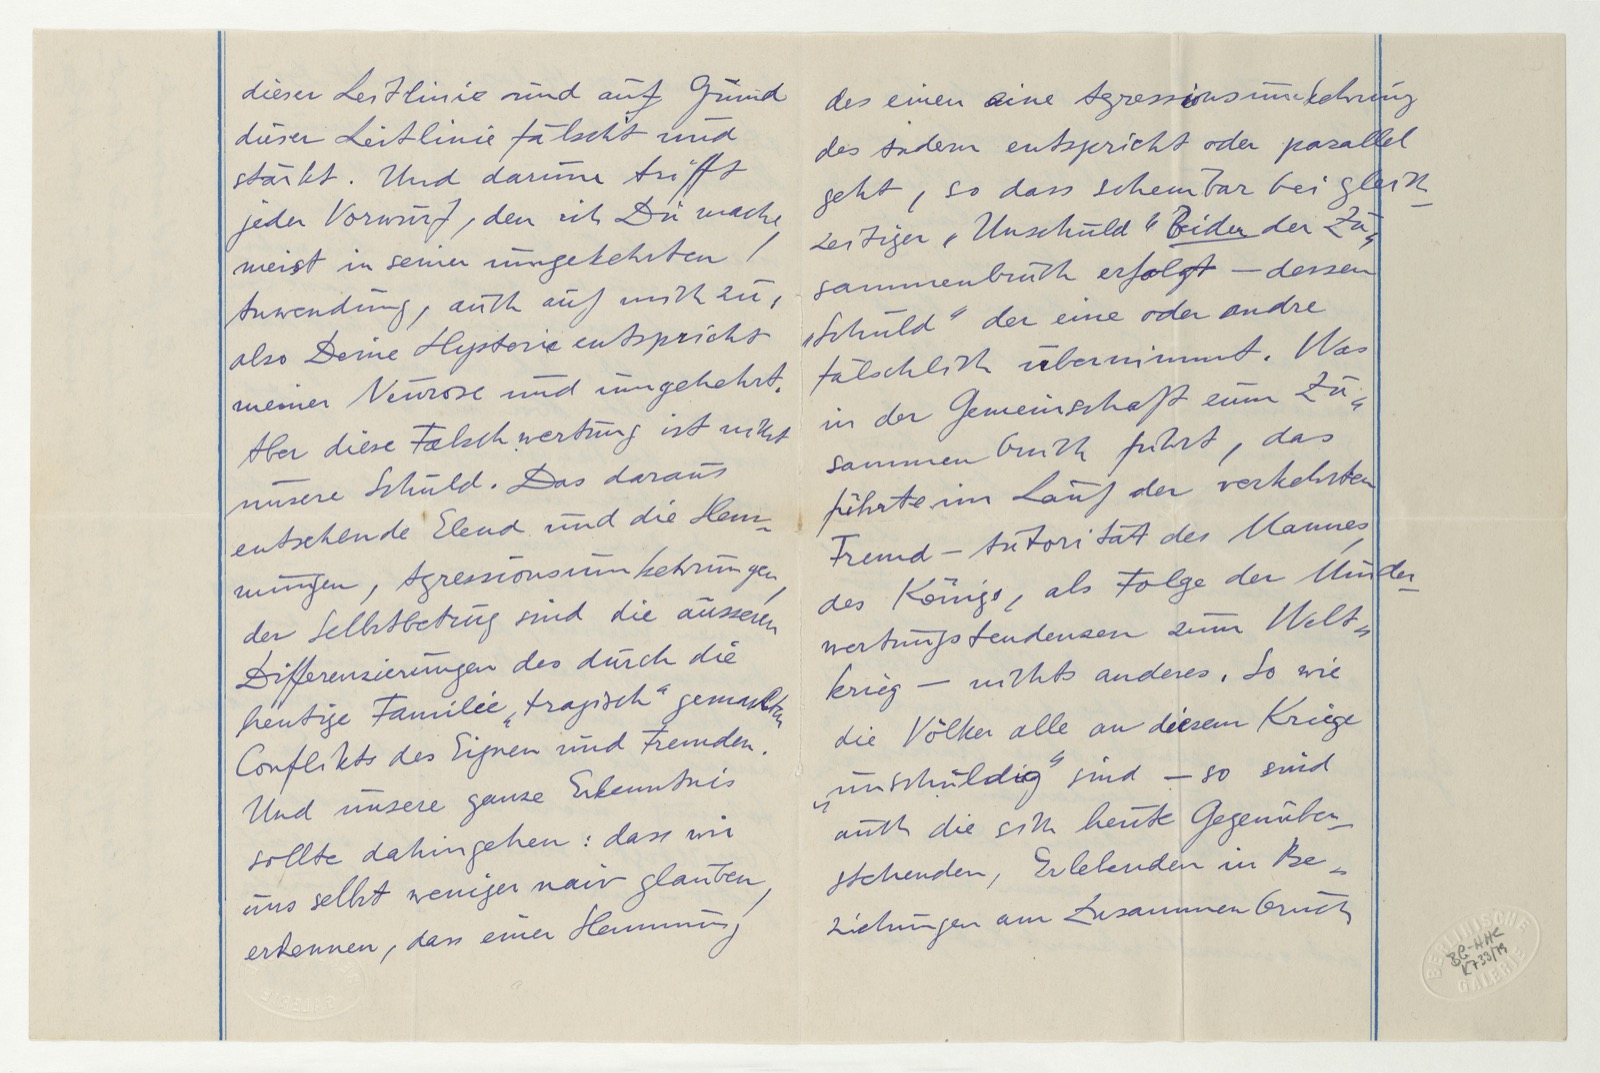 dieser Leitlinie und auf Grund
dieser Leitlinie fälscht und
stärkt. Und darum trifft
jeder Vorwurf, den ich Dir mache,
meist in seiner umgekehrten
Anwendung, auch auf mich zu,
also Deine Hysterie entspricht
meiner Neurose und umgekehrt.
Aber diese Falschwertung ist nicht
unsere Schuld. Das daraus
entstehende Elend und die Hem-
mungen, Agressionsumkehrungen,
der Selbstbetrug sind die äusseren
Differenzierungen des durch die
heutige Familie „tragisch“ gemachten
Conflikts des Eignen und Fremden.
Und unsere ganze Erkenntnis
sollte dahingehen: dass wir
uns selbst weniger naiv glauben,
erkennen, dass einer Hemmung
des einen eine Agressionsumkehrung
des andern entspricht oder parallel
geht, so dass scheinbar bei gleich-
zeitiger „Unschuld“ Beider der Zu-
sammenbruch erfolgt — dessen
„Schuld“ der eine oder andre
fälschlich übernimmt. Was
in der Gemeinschaft zum Zu-
sammenbruch führt, das
führte im Lauf der verkehrten
Fremd-Autorität des Mannes,
des Königs, als Folge der Minder-
wertungstendenzen zum Welt-
krieg — nichts anderes. So wie
die Völker alle an diesem Kriege
„unschuldig“ sind — so sind
auch die sich heute Gegenüber-
stehenden, Erlebenden in Be-
ziehungen am Zusammenbruch
BERLINISCHE
GALERIE
BG-HHC
K733/79
GALERIE